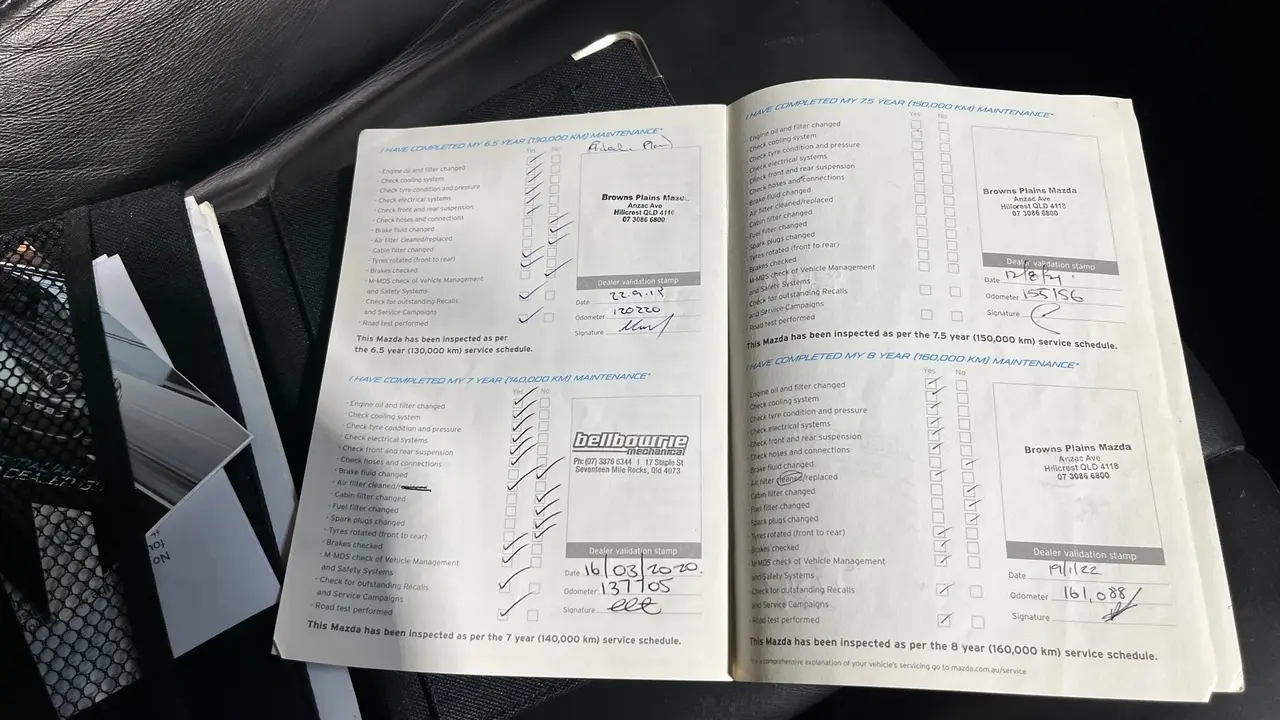 I HAVE COMPLETED MY 6.5 YEAR (130,000 KM) MAINTENANCE*
Yes No
- Engine oil and filter changed
- Check cooling system
- Check tyre condition and pressure
- Check electrical systems
- Check front and rear suspension
- Check hoses and connections
- Brake fluid changed
- Air filter cleaned/replaced
- Cabin filter changed
- Tyres rotated (front to rear)
- Brakes checked
- M-MDS check of Vehicle Management
and Safety Systems
- Check for outstanding Recalls
and Service Campaigns
- Road test performed
Browns Plains Mazda
Anzac Ave
Hillcrest QLD 4118
07 3086 6800
Dealer validation stamp
Date
Odometer 120220
Signature
This Mazda has been inspected as per
the 6.5 year (130,000 km) service schedule.
I HAVE COMPLETED MY 7 YEAR (140,000 KM) MAINTENANCE*
Yes No
- Engine oil and filter changed
- Check cooling system
- Check tyre condition and pressure
- Check electrical systems
- Check front and rear suspension
- Check hoses and connections
- Brake fluid changed
- Air filter cleaned/replaced
- Cabin filter changed
- Fuel filter changed
- Spark plugs changed
- Tyres rotated (front to rear)
- Brakes checked
- M-MDS check of Vehicle Management
and Safety Systems
- Check for outstanding Recalls
and Service Campaigns
- Road test performed
bellbowrie
mechanical
Ph: (07) 3376 5344 | 17 Staple St
Seventeen Mile Rocks, Qld 4073
Dealer validation stamp
Date 16/03/2020.
Odometer 137705
Signature
This Mazda has been inspected as per the 7 year (140,000 km) service schedule.
I HAVE COMPLETED MY 7.5 YEAR (150,000 KM) MAINTENANCE*
Yes No
- Engine oil and filter changed
- Check cooling system
- Check tyre condition and pressure
- Check electrical systems
- Check front and rear suspension
- Check hoses and connections
- Brake fluid changed
- Air filter cleaned/replaced
- Cabin filter changed
- Fuel filter changed
- Spark plugs changed
- Tyres rotated (front to rear)
- Brakes checked
- M-MDS check of Vehicle Management
and Safety Systems
- Check for outstanding Recalls
and Service Campaigns
- Road test performed
Browns Plains Mazda
Anzac Ave
Hillcrest QLD 4118
07 3086 6800
Dealer validation stamp
Date 12/8/21
Odometer 155156
Signature
This Mazda has been inspected as per the 7.5 year (150,000 km) service schedule.
I HAVE COMPLETED MY 8 YEAR (160,000 KM) MAINTENANCE*
Yes No
- Engine oil and filter changed
- Check cooling system
- Check tyre condition and pressure
- Check electrical systems
- Check front and rear suspension
- Check hoses and connections
- Brake fluid changed
- Air filter cleaned/replaced
- Cabin filter changed
- Fuel filter changed
- Spark plugs changed
- Tyres rotated (front to rear)
- Brakes checked
- M-MDS check of Vehicle Management
and Safety Systems
- Check for outstanding Recalls
and Service Campaigns
- Road test performed
Browns Plains Mazda
Anzac Ave
Hillcrest QLD 4118
07 3086 6800
Dealer validation stamp
Date 19/1/22
Odometer 161,088
Signature
This Mazda has been inspected as per the 8 year (160,000 km) service schedule.
comprehensive explanation of your vehicle's servicing go to mazda.com.au/service